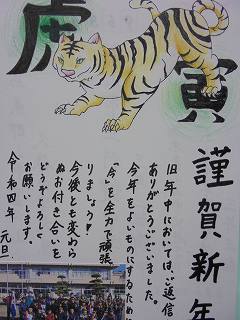 虎
寅
謹賀新年
旧年中においては、ご返信
ありがとうございました。
今年をよいものにするために
「今」を全力で頑張
りましょう!
今後とも変わら
ぬお付き合いを
どうぞよろしく
お願いします。
令和四年 元旦